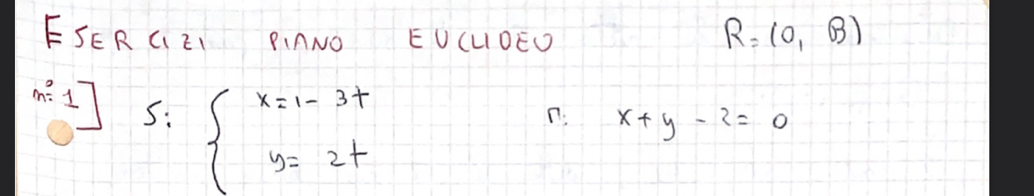 ESERCIZI PIANO EUCLIDEO R=(O, B)
n°=1] S: { x=1-3t r: x+y-2=0
y=2t